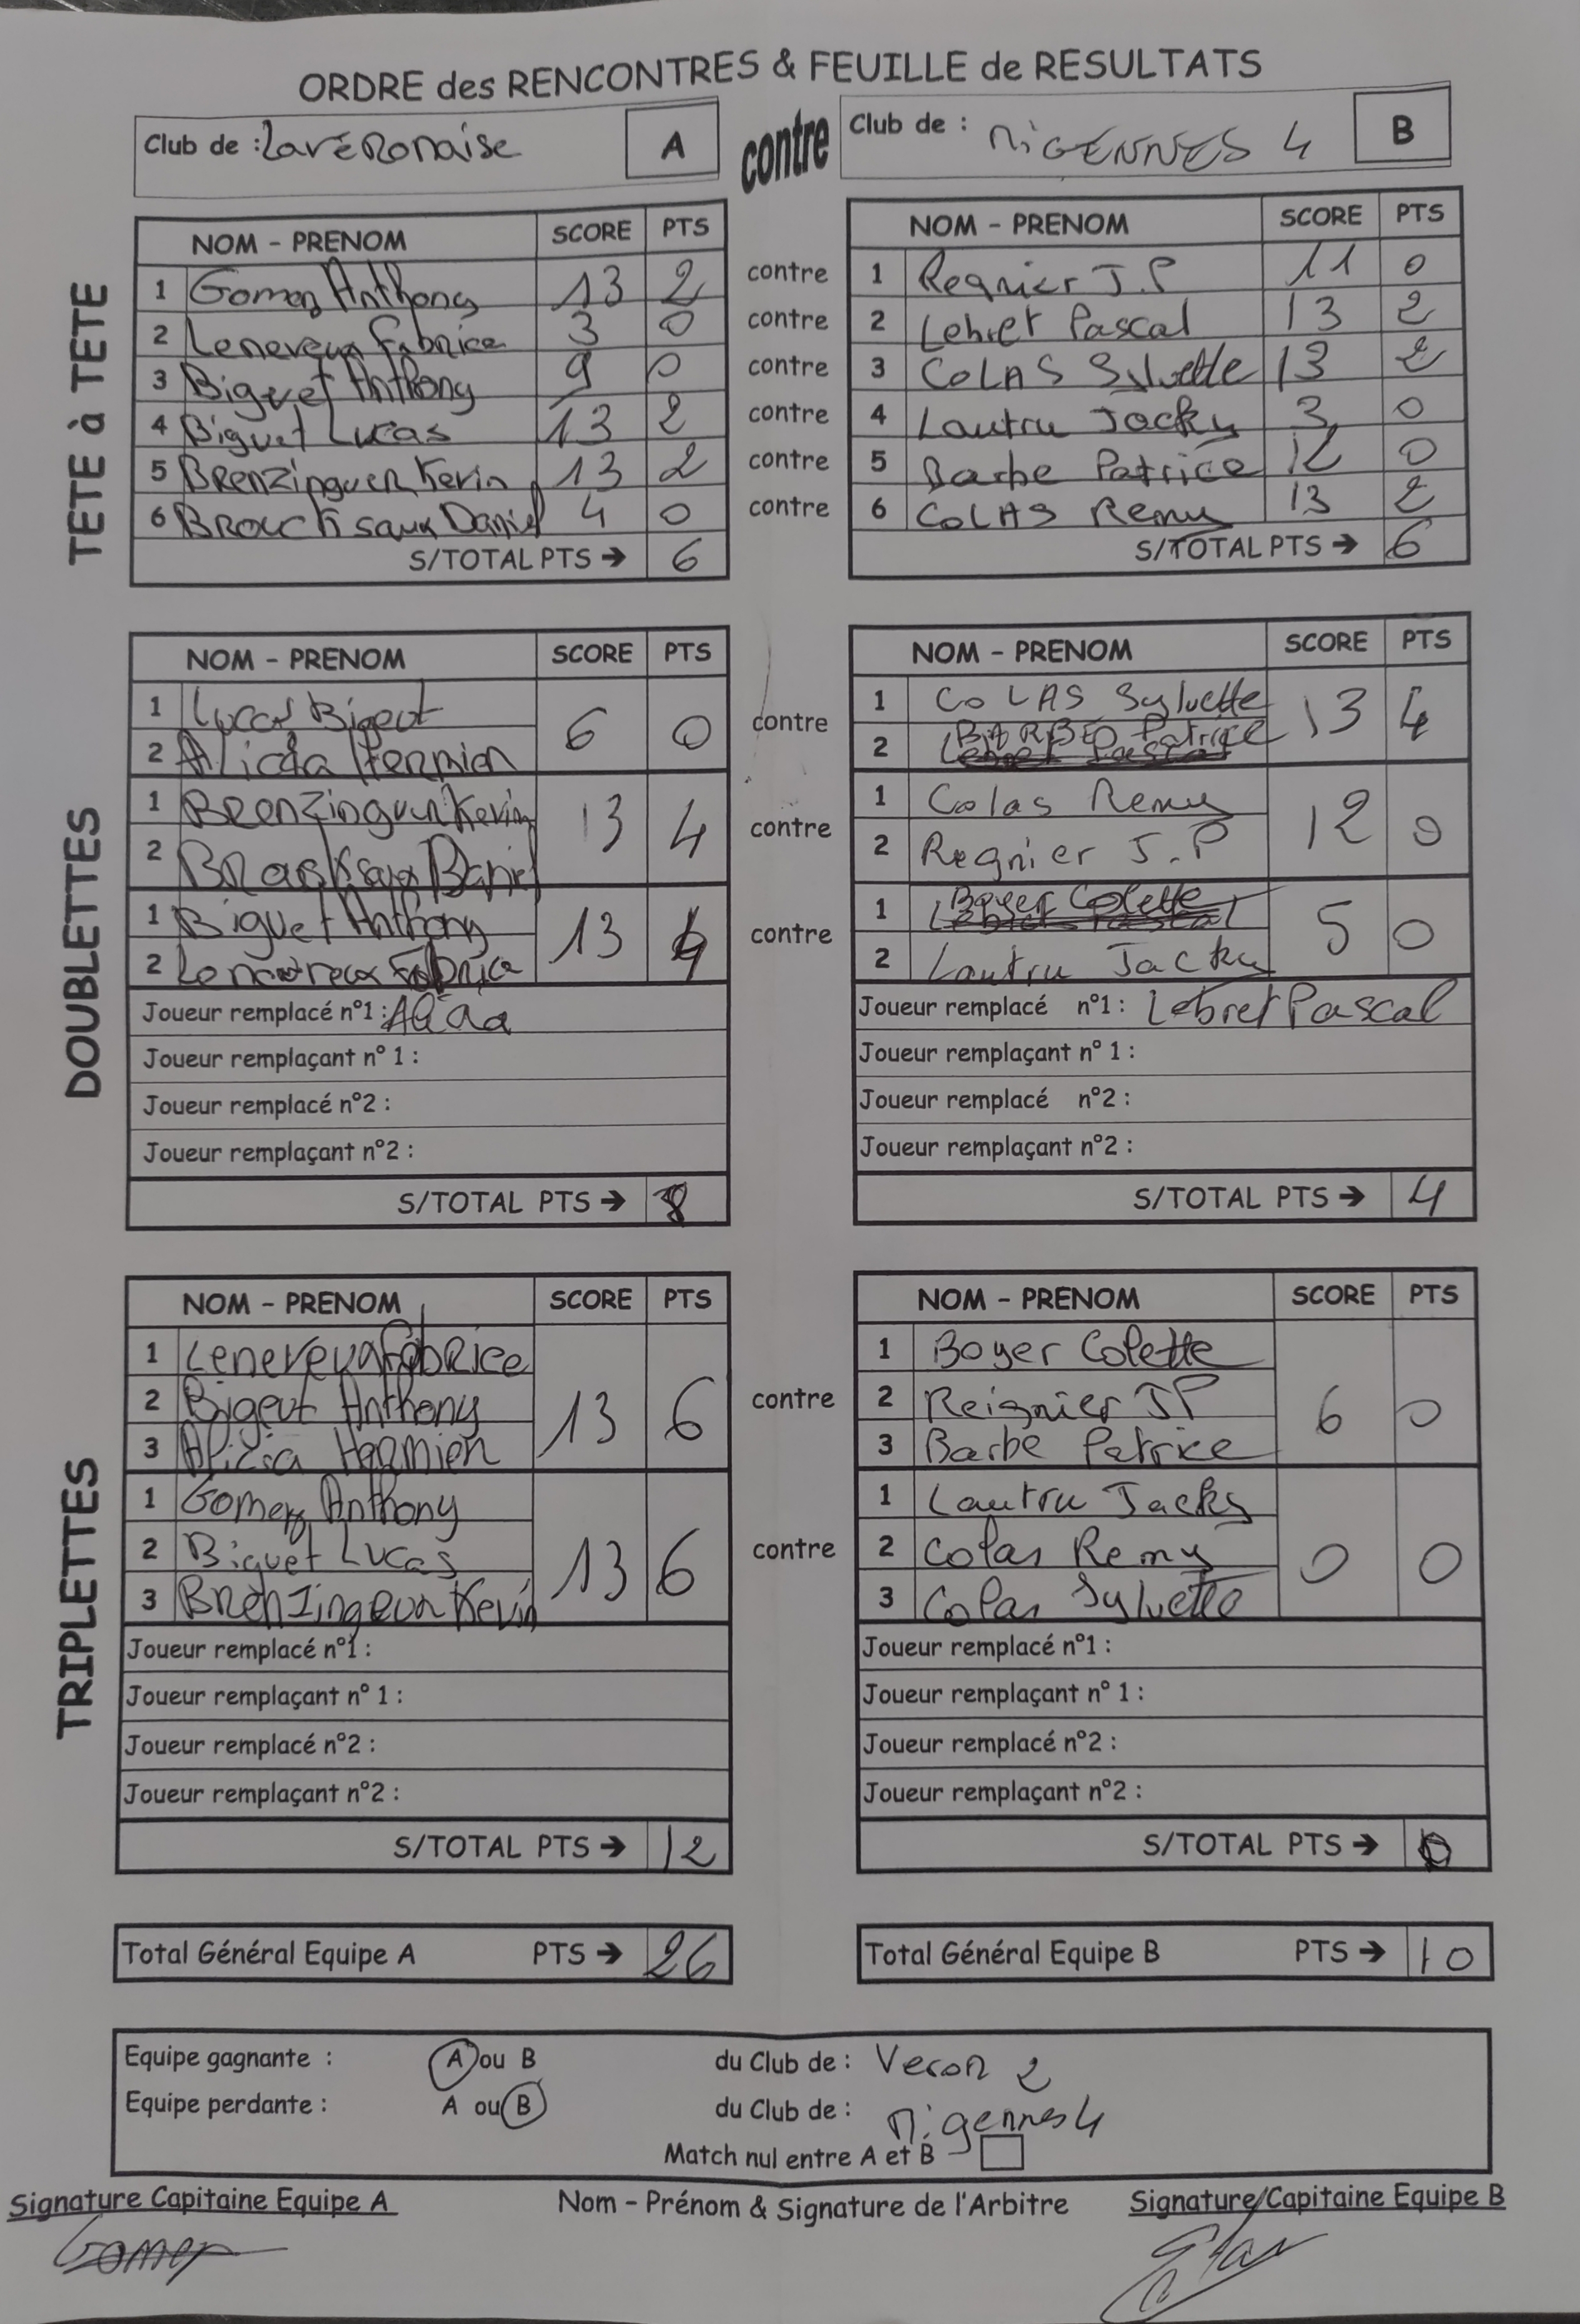 ORDRE des RENCONTRES & FEUILLE de RESULTATS
Club de : LaVéRonaise A contre Club de : MIGENNES 4 B
TETE à TETE
NOM - PRENOM SCORE PTS NOM - PRENOM SCORE PTS
1 Gomez Anthony 13 2 contre 1 Regnier J.P 11 0
2 Leneveux Fabrice 3 0 contre 2 Lebret Pascal 13 2
3 Biguet Anthony 9 0 contre 3 COLAS Sylvette 13 2
4 Biguet Lucas 13 2 contre 4 Lautru Jacky 3 0
5 Brenzinguer Kevin 13 2 contre 5 Barbe Patrice 12 0
6 BROUCKsaux Daniel 4 0 contre 6 COLAS Remy 13 2
S/TOTAL PTS → 6 S/TOTAL PTS → 6
DOUBLETTES
NOM - PRENOM SCORE PTS NOM - PRENOM SCORE PTS
1 Lucas Bigeut 6 0 contre 1 COLAS Sylvette 13 4
2 Alicia Hermien 2 BARBE Patrice
1 Brenzinguer Kevin 13 4 contre 1 Colas Remy 12 0
2 Daniel 2 Regnier J.P
1 Biguet Anthony 13 4 contre 1 Boyer Colette 5 0
2 Fabrice 2 Lautru Jacky
Joueur remplacé n°1 : Alicia Joueur remplacé n°1 : Lebret Pascal
Joueur remplaçant n° 1 : Joueur remplaçant n° 1 :
Joueur remplacé n°2 : Joueur remplacé n°2 :
Joueur remplaçant n°2 : Joueur remplaçant n°2 :
S/TOTAL PTS → 8 S/TOTAL PTS → 4
TRIPLETTES
NOM - PRENOM SCORE PTS NOM - PRENOM SCORE PTS
1 Leneveux Fabrice 13 6 contre 1 Boyer Colette 6 0
2 Bigeut Anthony 2 Reignier JP
3 Alicia Hermien 3 Barbe Patrice
1 Gomez Anthony 13 6 contre 1 Lautru Jacky 0 0
2 Biguet Lucas 2 Colas Remy
3 Brenzingeur Kevin 3 Colas Sylvette
Joueur remplacé n°1 : Joueur remplacé n°1 :
Joueur remplaçant n° 1 : Joueur remplaçant n° 1 :
Joueur remplacé n°2 : Joueur remplacé n°2 :
Joueur remplaçant n°2 : Joueur remplaçant n°2 :
S/TOTAL PTS → 12 S/TOTAL PTS → 0
Total Général Equipe A PTS → 26 Total Général Equipe B PTS → 10
Equipe gagnante : A ou B du Club de : Veron 2
Equipe perdante : A ou B du Club de : Migennes 4
Match nul entre A et B
Signature Capitaine Equipe A Nom - Prénom & Signature de l'Arbitre Signature Capitaine Equipe B
Gomez